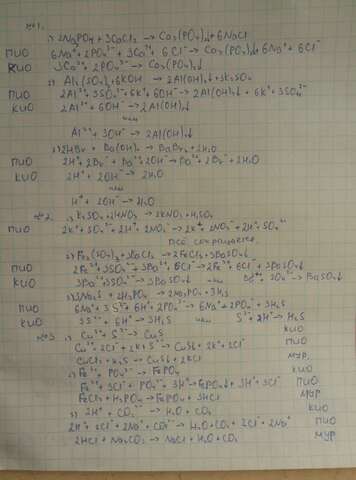 №1.
1) 2Na3PO4 + 3CaCl2 → Ca3(PO4)2↓ + 6NaCl
ПИО 6Na⁺ + 2PO4³⁻ + 3Ca²⁺ + 6Cl⁻ → Ca3(PO4)2↓ + 6Na⁺ + 6Cl⁻
КИО 3Ca²⁺ + 2PO4³⁻ → Ca3(PO4)2↓
2) Al2(SO4)3 + 6KOH → 2Al(OH)3↓ + 3K2SO4
ПИО 2Al³⁺ + 3SO4²⁻ + 6K⁺ + 6OH⁻ → 2Al(OH)3↓ + 6K⁺ + 3SO4²⁻
КИО 2Al³⁺ + 6OH⁻ → 2Al(OH)3↓
или
Al³⁺ + 3OH⁻ → 2Al(OH)3↓
3) 2HBr + Ba(OH)2 → BaBr2 + 2H2O
ПИО 2H⁺ + 2Br⁻ + Ba²⁺ + 2OH⁻ → Ba²⁺ + 2Br⁻ + 2H2O
КИО 2H⁺ + 2OH⁻ → 2H2O
или
H⁺ + OH⁻ → H2O
№2. 1) K2SO4 + 2HNO3 → 2KNO3 + H2SO4
ПИО 2K⁺ + SO4²⁻ + 2H⁺ + 2NO3⁻ → 2K⁺ + 2NO3⁻ + 2H⁺ + SO4²⁻
всё сокращается.
2) Fe2(SO4)3 + 3BaCl2 → 2FeCl3 + 3BaSO4↓
ПИО 2Fe³⁺ + 3SO4²⁻ + 3Ba²⁺ + 6Cl⁻ → 2Fe³⁺ + 6Cl⁻ + 3BaSO4↓
КИО 3Ba²⁺ + 3SO4²⁻ → 3BaSO4↓ или Ba²⁺ + SO4²⁻ → BaSO4↓
3) 3Na2S + 2H3PO4 → 2Na3PO4 + 3H2S
ПИО 6Na⁺ + 3S²⁻ + 6H⁺ + 2PO4³⁻ → 6Na⁺ + 2PO4³⁻ + 3H2S
КИО 3S²⁻ + 6H⁺ → 3H2S или S²⁻ + 2H⁺ → H2S
№3 1) Cu²⁺ + S²⁻ → CuS КИО
Cu²⁺ + 2Cl⁻ + 2K⁺ + S²⁻ → CuS↓ + 2K⁺ + 2Cl⁻ ПИО
CuCl2 + K2S → CuS↓ + 2KCl МУР
2) Fe³⁺ + PO4³⁻ → FePO4 КИО
Fe³⁺ + 3Cl⁻ + PO4³⁻ + 3H⁺ → FePO4↓ + 3H⁺ + 3Cl⁻ ПИО
FeCl3 + H3PO4 → FePO4 + 3HCl МУР
3) 2H⁺ + CO3²⁻ → H2O + CO2 КИО
2H⁺ + 2Cl⁻ + 2Na⁺ + CO3²⁻ → H2O + CO2 + 2Cl⁻ + 2Na⁺ ПИО
2HCl + Na2CO3 → NaCl + H2O + CO2 МУР